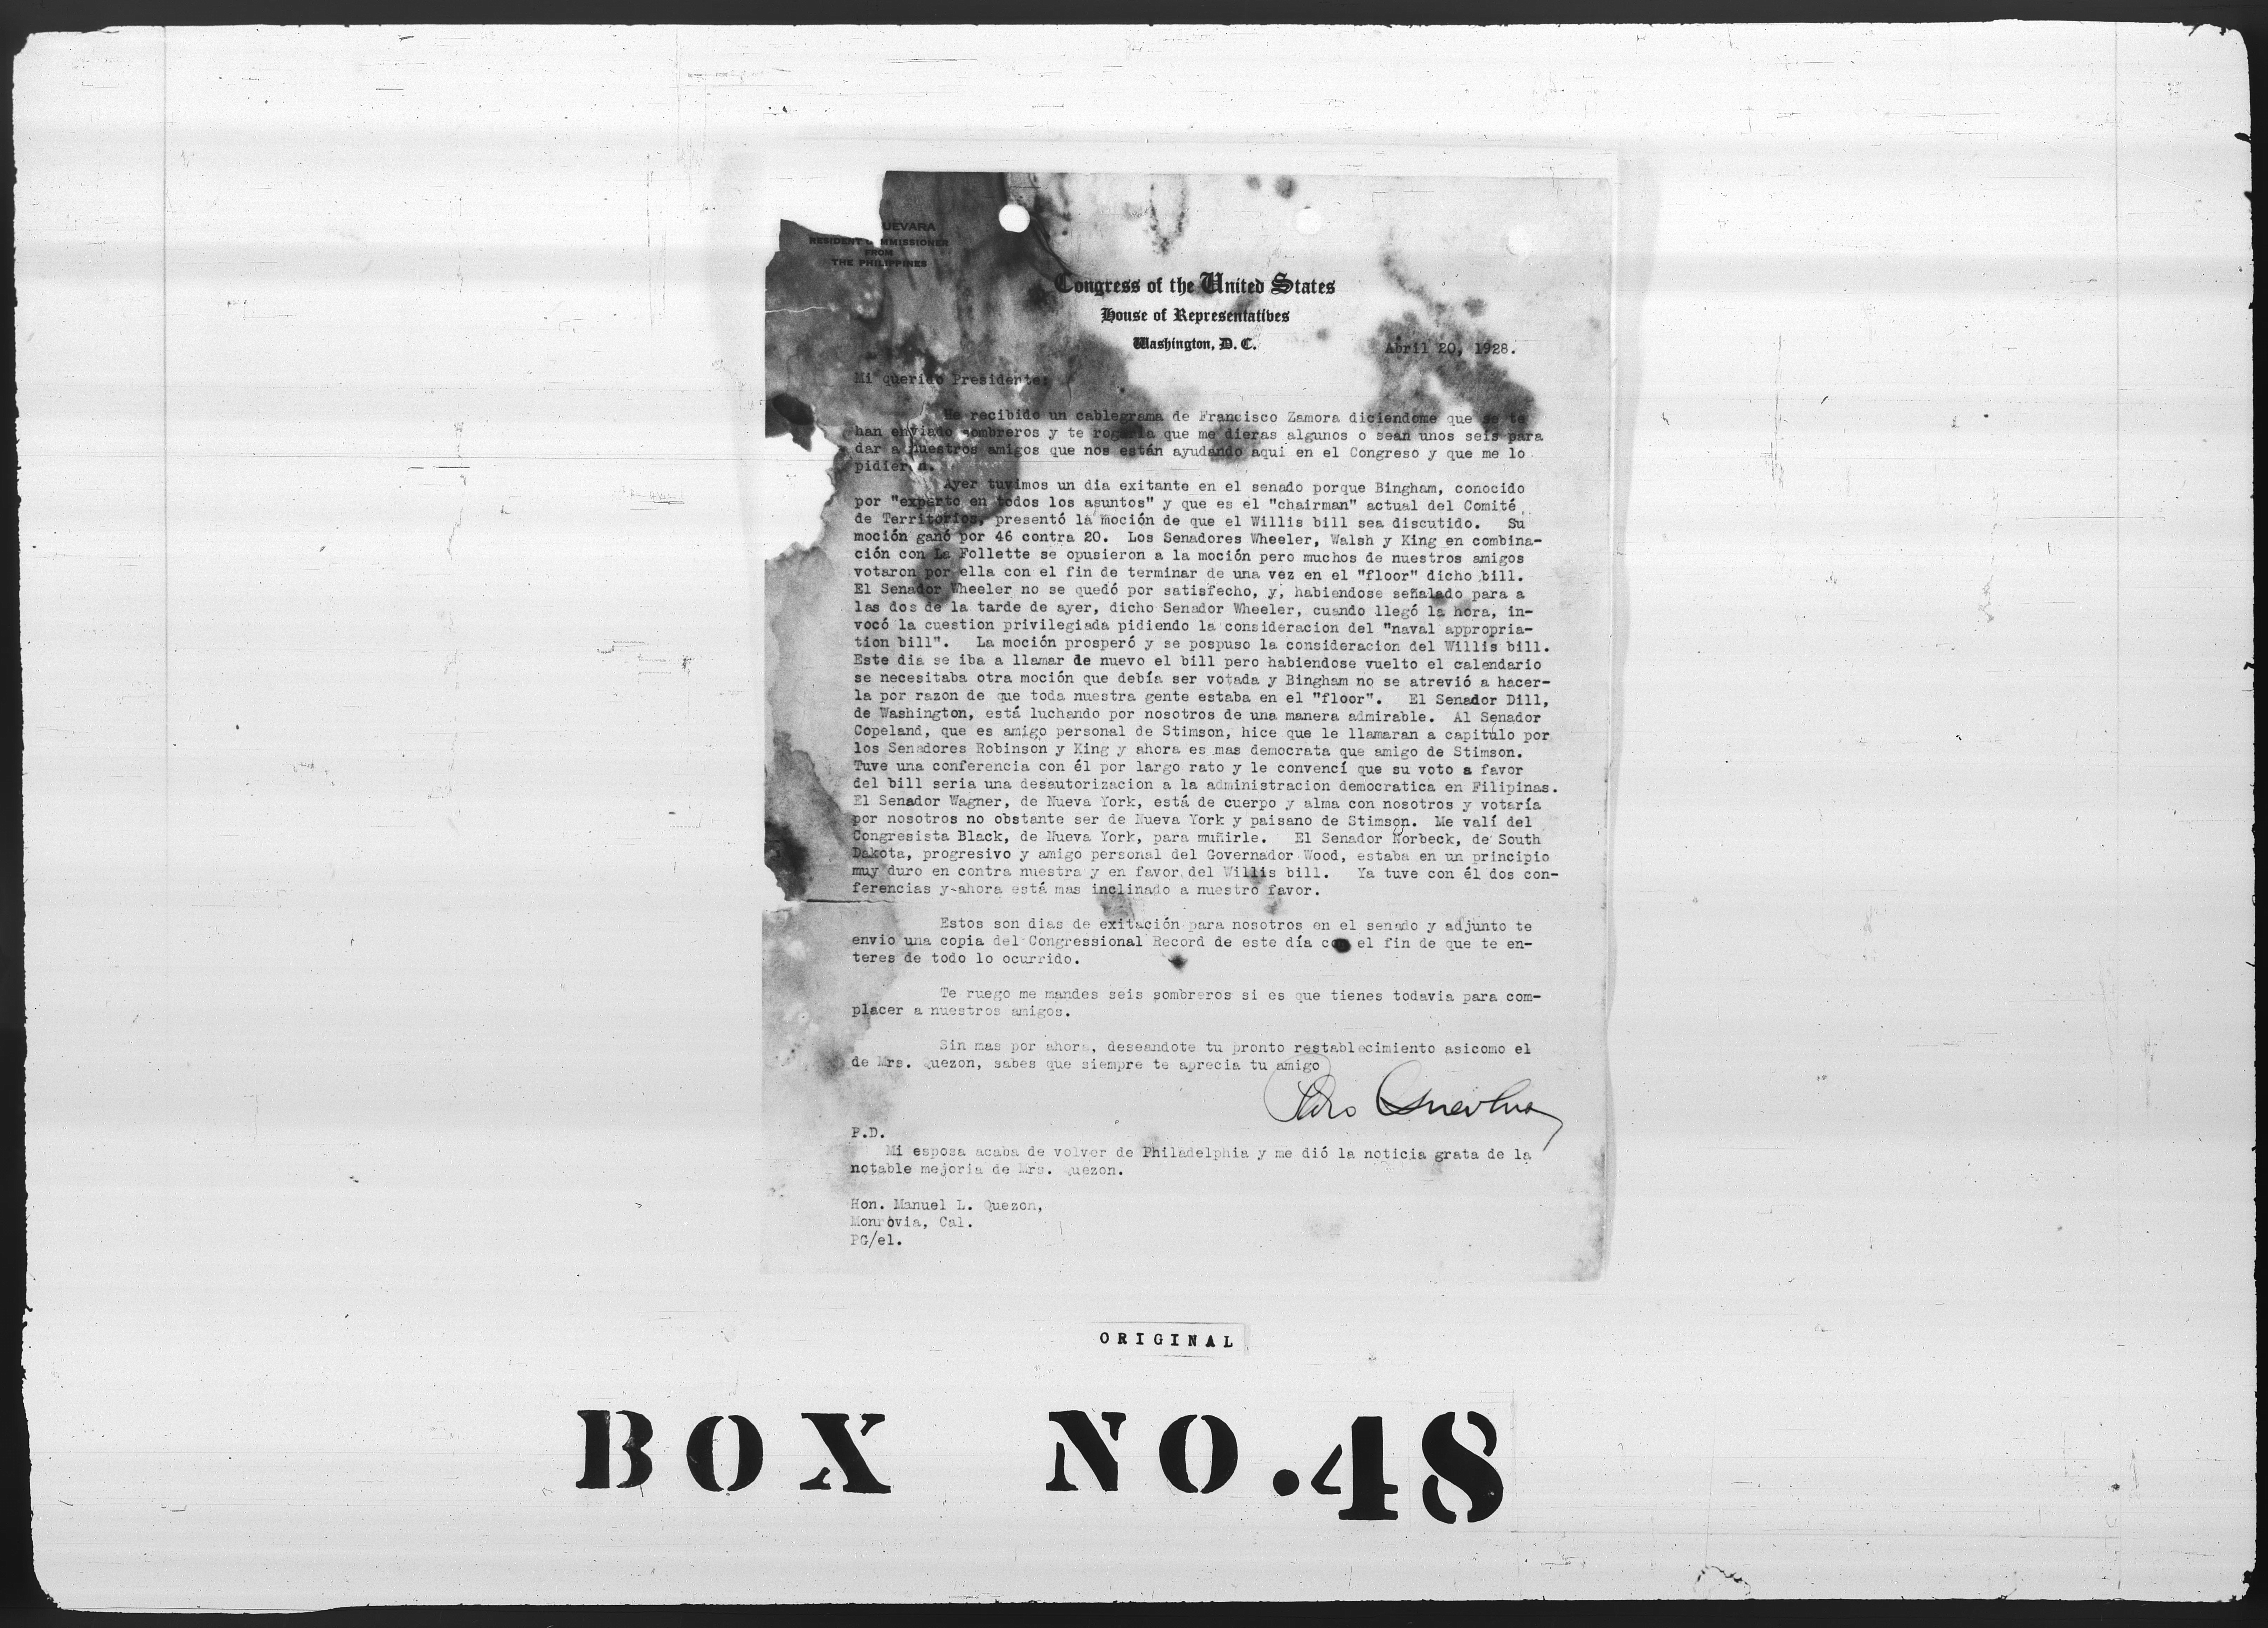 UEVARA
RESIDENT C MMISSIONER
FROM
THE PHILIPPINES
Congress of the United States
House of Representatives
Washington, D. C.
Abril 20, 1928.
Mi querido Presidente:
He recibido un cablegrama de Francisco Zamora diciendome que se te
han enviado sombreros y te rogaria que me dieras algunos o sean unos seis para
dar a nuestros amigos que nos están ayudando aqui en el Congreso y que me lo
pidier n.
Ayer tuvimos un dia exitante en el senado porque Bingham, conocido
por "experto en todos los asuntos" y que es el "chairman" actual del Comité
de Territorios, presentó la moción de que el Willis bill sea discutido. Su
moción ganó por 46 contra 20. Los Senadores Wheeler, Walsh y King en combina-
ción con La Follette se opusieron a la moción pero muchos de nuestros amigos
votaron por ella con el fin de terminar de una vez en el "floor" dicho bill.
El Senador Wheeler no se quedó por satisfecho, y, habiendose señalado para a
las dos de la tarde de ayer, dicho Senador Wheeler, cuando llegó la hora, in-
vocó la cuestion privilegiada pidiendo la consideracion del "naval appropria-
tion bill". La moción prosperó y se pospuso la consideracion del Willis bill.
Este dia se iba a llamar de nuevo el bill pero habiendose vuelto el calendario
se necesitaba otra moción que debía ser votada y Bingham no se atrevió a hacer-
la por razon de que toda nuestra gente estaba en el "floor". El Senador Dill,
de Washington, está luchando por nosotros de una manera admirable. Al Senador
Copeland, que es amigo personal de Stimson, hice que le llamaran a capitulo por
los Senadores Robinson y King y ahora es mas democrata que amigo de Stimson.
Tuve una conferencia con él por largo rato y le convencí que su voto a favor
del bill seria una desautorizacion a la administracion democratica en Filipinas.
El Senador Wagner, de Nueva York, está de cuerpo y alma con nosotros y votaría
por nosotros no obstante ser de Nueva York y paisano de Stimson. Me valí del
Congresista Black, de Nueva York, para muñirle. El Senador Norbeck, de South
Dakota, progresivo y amigo personal del Governador Wood, estaba en un principio
muy duro en contra nuestra y en favor del Willis bill. Ya tuve con él dos con-
ferencias y ahora está mas inclinado a nuestro favor.
Estos son dias de exitación para nosotros en el senado y adjunto te
envio una copia del Congressional Record de este día con el fin de que te en-
teres de todo lo ocurrido.
Te ruego me mandes seis sombreros si es que tienes todavia para com-
placer a nuestros amigos.
Sin mas por ahora, deseandote tu pronto restablecimiento asicomo el
de Mrs. Quezon, sabes que siempre te aprecia tu amigo
Pedro Guevara
P.D.
Mi esposa acaba de volver de Philadelphia y me dió la noticia grata de la
notable mejoria de Mrs. Quezon.
Hon. Manuel L. Quezon,
Monrovia, Cal.
PG/el.
ORIGINAL
BOX NO.48